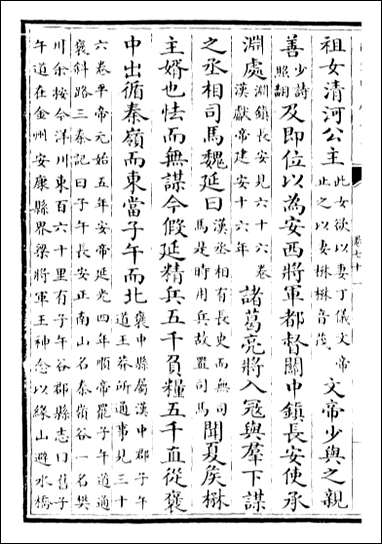 祖女清河公主此女欲以妻丁儀文帝止之以妻楙楙音茂文帝少與之親
善少詩照翻及即位以為安西將軍都督關中鎮長安使承
淵處淵鎮長安見六十六卷漢獻帝建安十六年諸葛亮將入冦與羣下謀
之丞相司馬魏延曰漢丞相有長史而無司馬是時用兵故置司馬聞夏矦楙
主婿也怯而無謀今假延精兵五千負糧五千直從褒
中出循秦嶺而東當子午而北褒中縣屬漢中郡子午道王莽所通事見三十
六卷平帝元始五年安帝延光四年順帝罷子午道通褒斜路三秦記曰子午長安正南山名秦嶺谷一名樊
川余按今洋川東百六十里有子午谷郡縣志曰舊子午道在金州安康縣界梁將軍王神念以緣山避水橋
卷七十一